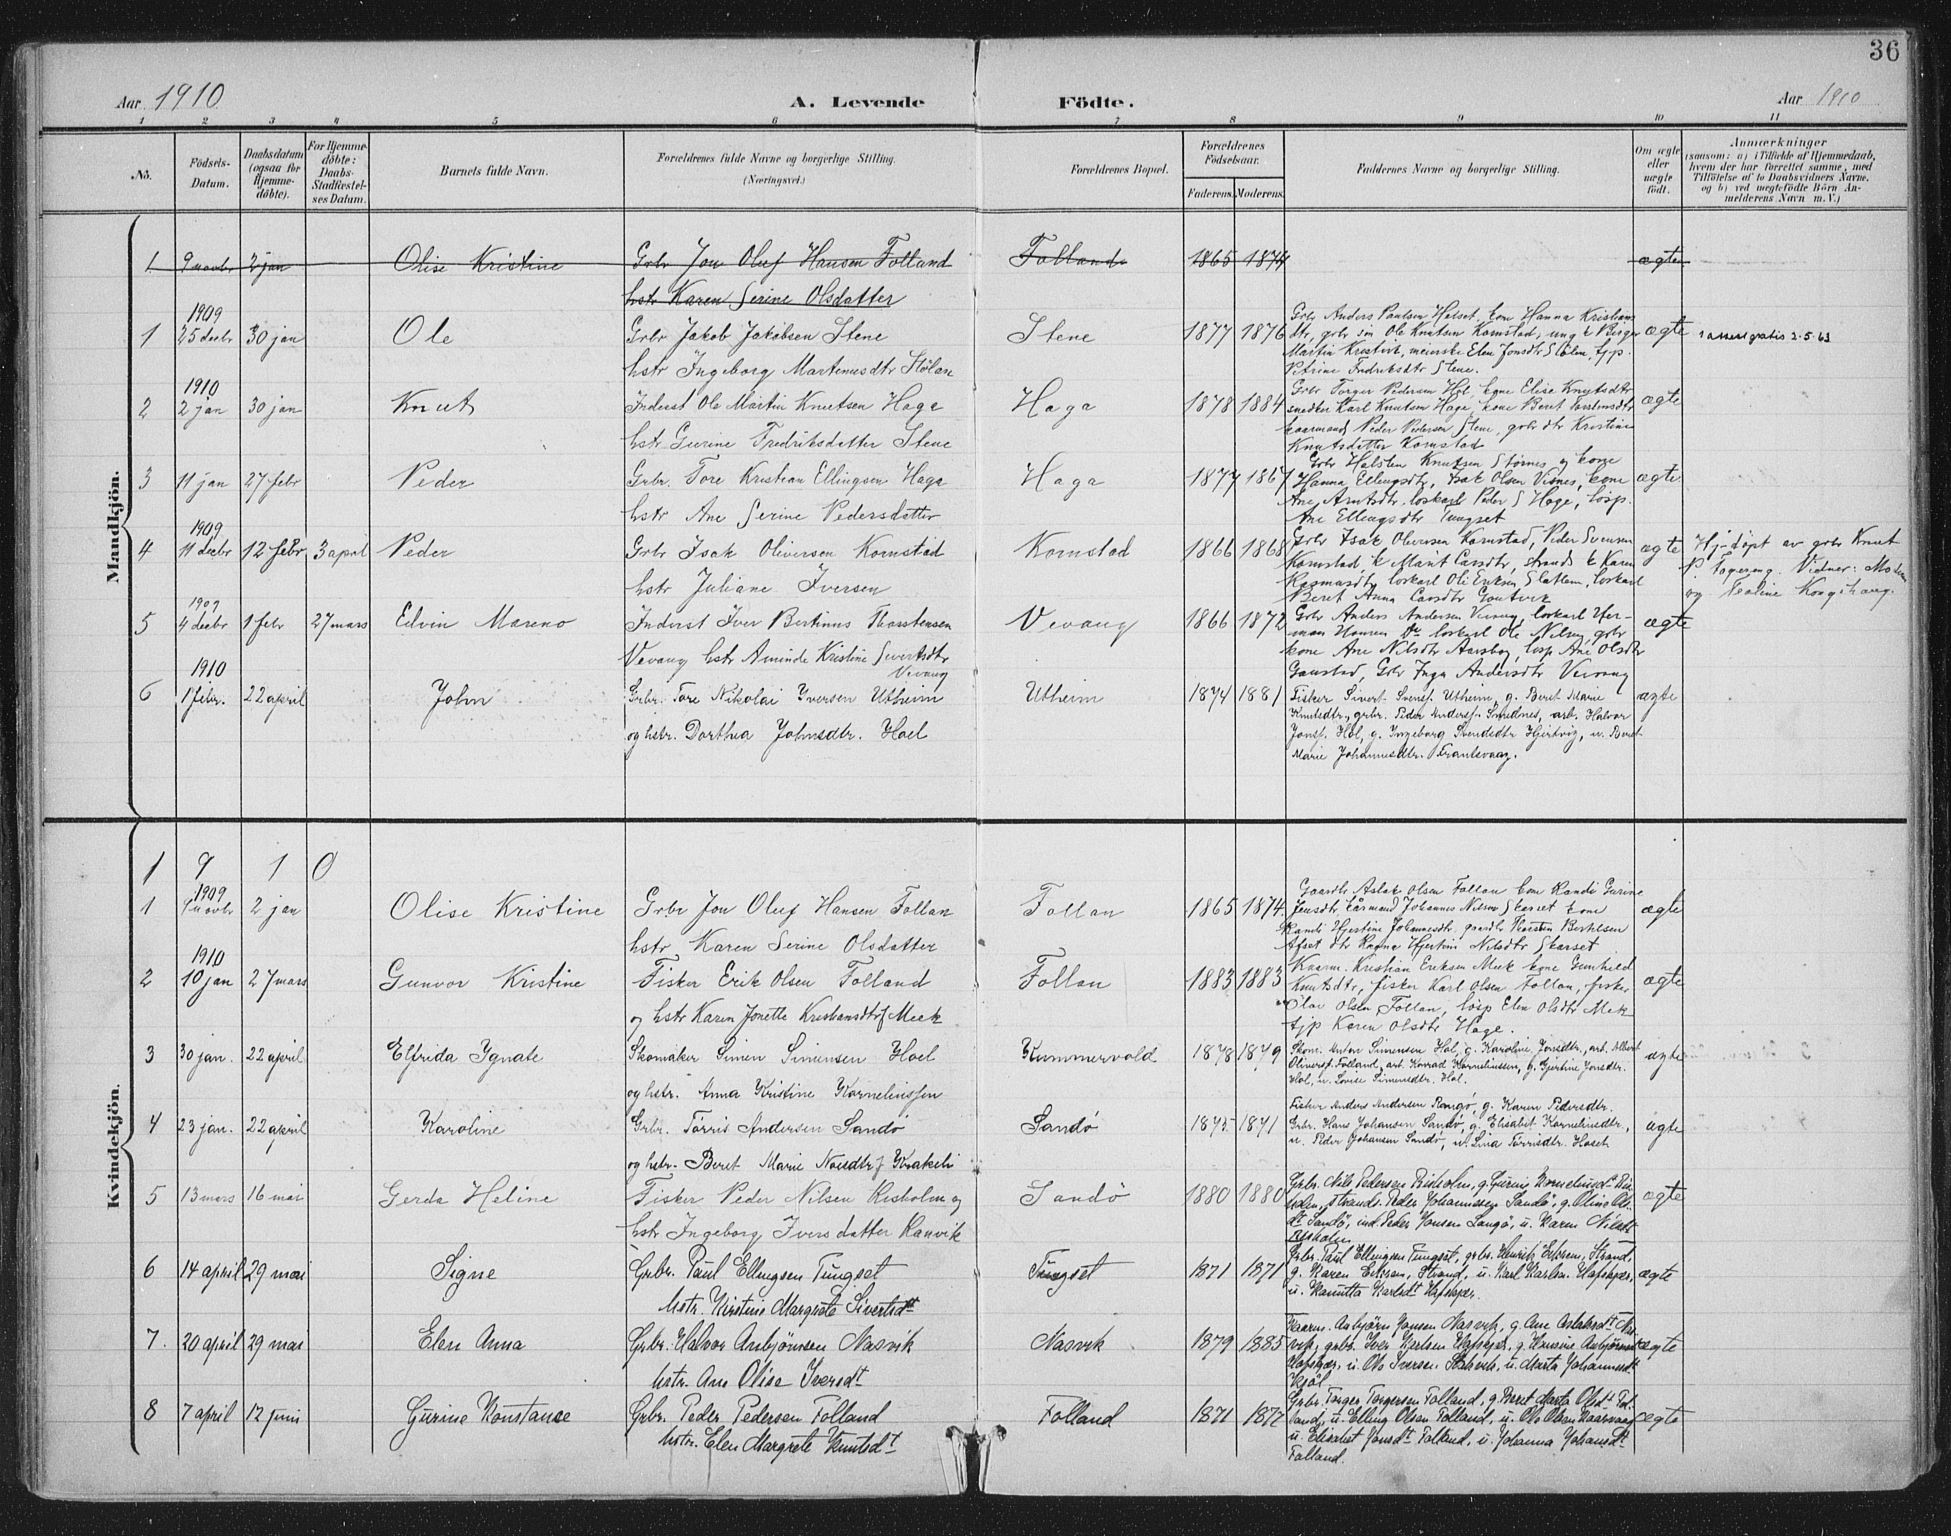 36
Aar 1910
A. Levende
Födte.
Aar 1910
1 2 3 4 5 6 7 8 9 10 11
No.
Födsels-Datum.
Daabsdatum (ogsaa for Hjemme-döbte).
For Hjemme-döbte: Daabs-Stadfæstel-ses Datum.
Barnets fulde Navn.
Forældrenes fulde Navne og borgerlige Stilling.
(Næringsvei.)
Forældrenes Bopæl.
Forældrenes Födselsaar.
Faderens. Moderens.
Faddernes Navne og borgerlige Stilling.
Om ægte eller uægte födt.
Anmærkninger
(saasom: a) i Tilfælde af Hjemmedaab, hvem der har forrettet samme, med Tilföielse af to Daabsvidners Navne, og b) ved uægtefödte Börn An-melderens Navn m. V.)
Mandkjön.
1 9 novbr 2 jan Olise Kristine Grbr Jon Oluf Hansen Folland Folland 1865 1874 ægte
hstr Karen Serine Olsdatter
1909
1 25 decbr 30 jan Ole Grbr Jakob Jakobsen Stene Stene 1877 1876 ægte
hstr Ingeborg Martinusdtr Stölan
Grbr Anders Paulsen Helset, kone Hanna Kristians
dtr, grbr søn Ole Knutsen Kornstad, ung k Birger
Petrine Fredriksdtr Stene.
2-5-63
1910
2 2 jan 30 jan Knut Inderst Ole Martin Knutsen Haga Haga 1878 1884 ægte
hstr Gurine Fredriksdatter Stene
Grbr Torger Pedersen Hol, kone Elise Knutsdtr
snedker Karl Knutsen Hage, kone Beret Torstensdtr
kaarmand Peder Pedersen Stene, grbr dtr Kristine
Knutsdatter Kornstad
3 11 jan 27 febr Peder Grbr. Tore Kristian Ellingsen Haga Haga 1877 1867 ægte
hstr Ane Serine Pedersdatter
Grbr Halsten Knutsen Störnes og kone
Hanna Ellingsdtr, Isak Olsen Visnes, kone
Ane Arntsdtr. loskarl Peder S Hage, lösp.
Ane Ellingsdtr Tungset
1909
4 11 decbr 12 febr 3 april Peder Grbr Isak Oliversen Kornstad Kornstad 1866 1868 ægte
hstr Juliane Iversen
Grbr Isak Oliversen Kornstad, Peder Svensen
Kornstad, k Marit Larsdtr, strands k Karen
Rasmusdtr, loskarl Ole Eriksen Slatlem, loskarl
Beret Anna Larsdtr
Hj.döpt av grbr Knut
Vidner: Modern
og
1909
5 4 decbr 1 febr 27 mars Edvin Mareno Inderst Iver Bertinus Thorstensen Vevang 1866 1872 ægte
Vevang hstr Aminde Kristine Sivertsdtr
Vevang
Grbr Anders Andersen Vevang, loskarl Her-
man Hansen loskarl Ole Nilsen, grbr
kone Ane Nilsdtr Aarsbog, lösp Ane Olsdtr
Gaustad, Grbr Inga Andersdtr Vevang
1910
6 1 febr. 22 april John Grbr. Tore Nikolai Iversen Utheim Utheim 1874 1881 ægte
og hstr. Dorthea Johnsdtr. Hoel
Fisker Sivert Svends. Utheim, g. Beret Marie
Knutsdtr., grbr. Peder Anderss. Smednes, arb. Halvor
Jonss. Hol, g. Ingeborg Svendsdtr Hjertvig, u. Beret
Marie Johannesdtr. Frantsvaag.
Kvindekjön.
1 9 1 0
1909
1 9 novbr 2 jan Olise Kristine Grbr Jon Oluf Hansen Follan Follan 1865 1874 ægte
hstr Karen Serine Olsdatter
Gaardbr Aslak Olsen Follan kone Randi Gurine
Jensdtr Kårmand Johannes Nilsen Skarset kone
Randi Hjertine Johannesdtr, gaardbr Thorsten Bertelsen
Afset dtr Ragna Hjertine Nilsdtr Skarset
1910
2 10 jan 27 mars Gunvor Kristine Fisker Erik Olsen Folland Follan 1883 1883 ægte
og hstr Karen Jonette Kristiansdtr f Meek
Kaarm. Kristian Eriksen Meek kone Gunhild
Knutsdtr, fisker Karl Olsen Follan, fisker
Olav Olsen Follan, lösp Elen Olsdtr Mek
tjp Karen Olsdtr Hage.
3 30 jan. 22 april Elfrida Ignate Skomaker Simen Simensen Hoel Kummervold 1878 1879 ægte
og hstr. Anna Kristine Korneliussen
Skom. Anton Simensen Hol, g. Karoline Jonsdtr., arb. Albert
Oliverss. Folland, arb. Konrad Korneliussen, g. Gjertine Jonsdtr.
Hol, u. Lovise Simensdtr. Hol.
4 23 jan. 22 april Karoline Grbr. Torris Andersen Sandø Sandø 1871 ægte
og hstr. Beret Marie Nilsdtr f Krakeli
Fisker Anders Andersen Rangø, g. Karen Pedersdtr.
Grbr. Hans Johansen Sandø, g. Elisabet Korneliusdtr.,
u. Peder Johansen Sandø, u. Lina Torrisdtr. Hoset.
5 13 mars 16 mai Gerda Heline Fisker Peder Nilsen Risholm og Sandö 1880 1880 ægte
hstr Ingeborg Iversdatter Ranvik
Grbr. Nils Pedersen Risholm, g. Gurine Korneliusdt. Ris-
holm, strands. Peder Johannessen Sandö, g. Oline Ols-
dt. Sandö, ind. Peder Hansen Langö, u. Karen Nilsdt
Risholm
6 14 april 29 mai Signe Grbr. Paul Ellingsen Tungset Tungset 1871 1871 ægte
hstr. Kirstine Margrete Sivertsdt
Grbr. Paul Ellingsen Tungset, grbr. Henrik Eriksen, Strand,
g. Karen Eriksen, Strand, u. Karl Karlsen Hafskjær,
u. Kanutta Karlsdt Hafskjær.
7. 20 april 29 mai Elen Anna Grbr. Halvor Asbjörnsen Nasvik Nasvik 1879 1885 ægte
hstr. Ane Olise Iversdt
Kaarm. Asbjörn Jonsen Nasvik, g. Ane Aslaksdt Nas-
vik, grbr. Iver Karlsen Hafskjær, g. Hansine Asbjörnsdt
Hafskjær, u. Ole Iversen u. Marta Johannesdt
8 7 april 12 juni Gurine Konstanse Grbr. Peder Pedersen Folland Folland 1871 1872 ægte
hstr. Elen Margrete Knutsdt
Grbr Torger Torgersen Folland, g. Beret Marta Olsdt Fol-
land, u. Elling Olsen Folland, u. Ole Olsen Kaarvaag
u. Elisabet Jonsdt Folland, u. Johanna Johansdt
Folland.